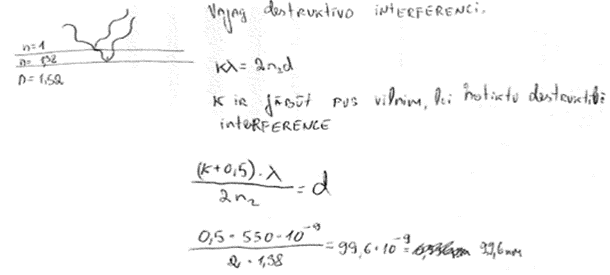 Vajag destruktīvo INTERFERENCI.
n=1
n=1,38
n=1,52
kλ = 2n₂d
K IR JĀBŪT PUS vilnim, lai notiktu destruktīvā
INTERFERENCE
(k+0,5)·λ / 2n₂ = d
0,5·550·10⁻⁹ / 2·1,38 = 99,6·10⁻⁹ = 99,6nm